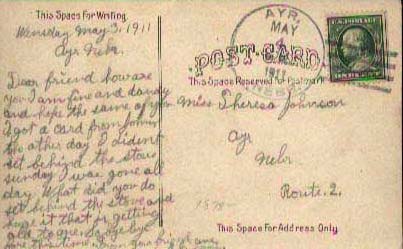 This Space For Writing
Wensday May 3, 1911
Ayr Nebr.
Dear friend how are
you I am fine and dandy
and hope the same of you
I got a card from
the other day I dident
set behind the stove
sunday I was gone all
day. What did you do
set behind the stove and
it that or getting
old to
AYR,
MAY
4
1911
NEBR.
U.S. POSTAGE
POST CARD
This Space Reserved for Postmark
Miss Theresa Johnson
Ayr
Nebr.
Route. 2.
This Space For Address Only